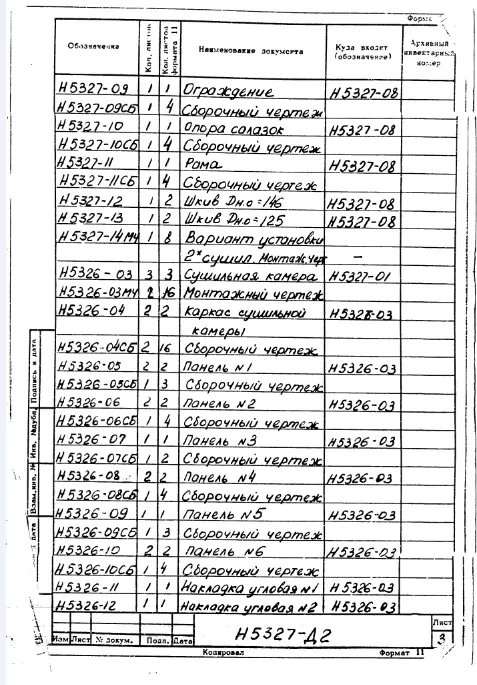 Форма
Обозначение Кол. листов Кол. листов формата 11 Наименование документа Куда входит (обозначение) Архивный инвентарный номер
Н5327-09 1 1 Ограждение Н5327-08
Н5327-09СБ 1 4 Сборочный чертеж
Н5327-10 1 1 Опора салазок Н5327-08
Н5327-10СБ 1 4 Сборочный чертеж
Н5327-11 1 1 Рама Н5327-08
Н5327-11СБ 1 4 Сборочный чертеж
Н5327-12 1 2 Шкив Dн.о=146 Н5327-08
Н5327-13 1 2 Шкив Dн.о=125 Н5327-08
Н5327-14МЧ 1 8 Вариант установки
2х сушил. Монтаж. чер —
Н5326-03 3 3 Сушильная камера Н5327-01
Н5326-03МЧ 2 16 Монтажный чертеж
Н5326-04 2 2 Каркас сушильной Н5326-03
камеры
Н5326-04СБ 2 16 Сборочный чертеж
Н5326-05 2 2 Панель N1 Н5326-03
Н5326-05СБ 1 3 Сборочный чертеж
Н5326-06 2 2 Панель N2 Н5326-03
Н5326-06СБ 1 4 Сборочный чертеж
Н5326-07 1 1 Панель N3 Н5326-03
Н5326-07СБ 1 2 Сборочный чертеж
Н5326-08 2 2 Панель N4 Н5326-03
Н5326-08СБ 1 4 Сборочный чертеж
Н5326-09 1 1 Панель N5 Н5326-03
Н5326-09СБ 1 3 Сборочный чертеж
Н5326-10 2 2 Панель N6 Н5326-03
Н5326-10СБ 1 4 Сборочный чертеж
Н5326-11 1 1 Накладка угловая N1 Н5326-03
Н5326-12 1 1 Накладка угловая N2 Н5326-03
Подпись и дата
Инв. №дубл.
Взам.инв. №
дата
Изм Лист № докум. Подп. Дата
Н5327-Д2
Лист
3
Копировал Формат 11